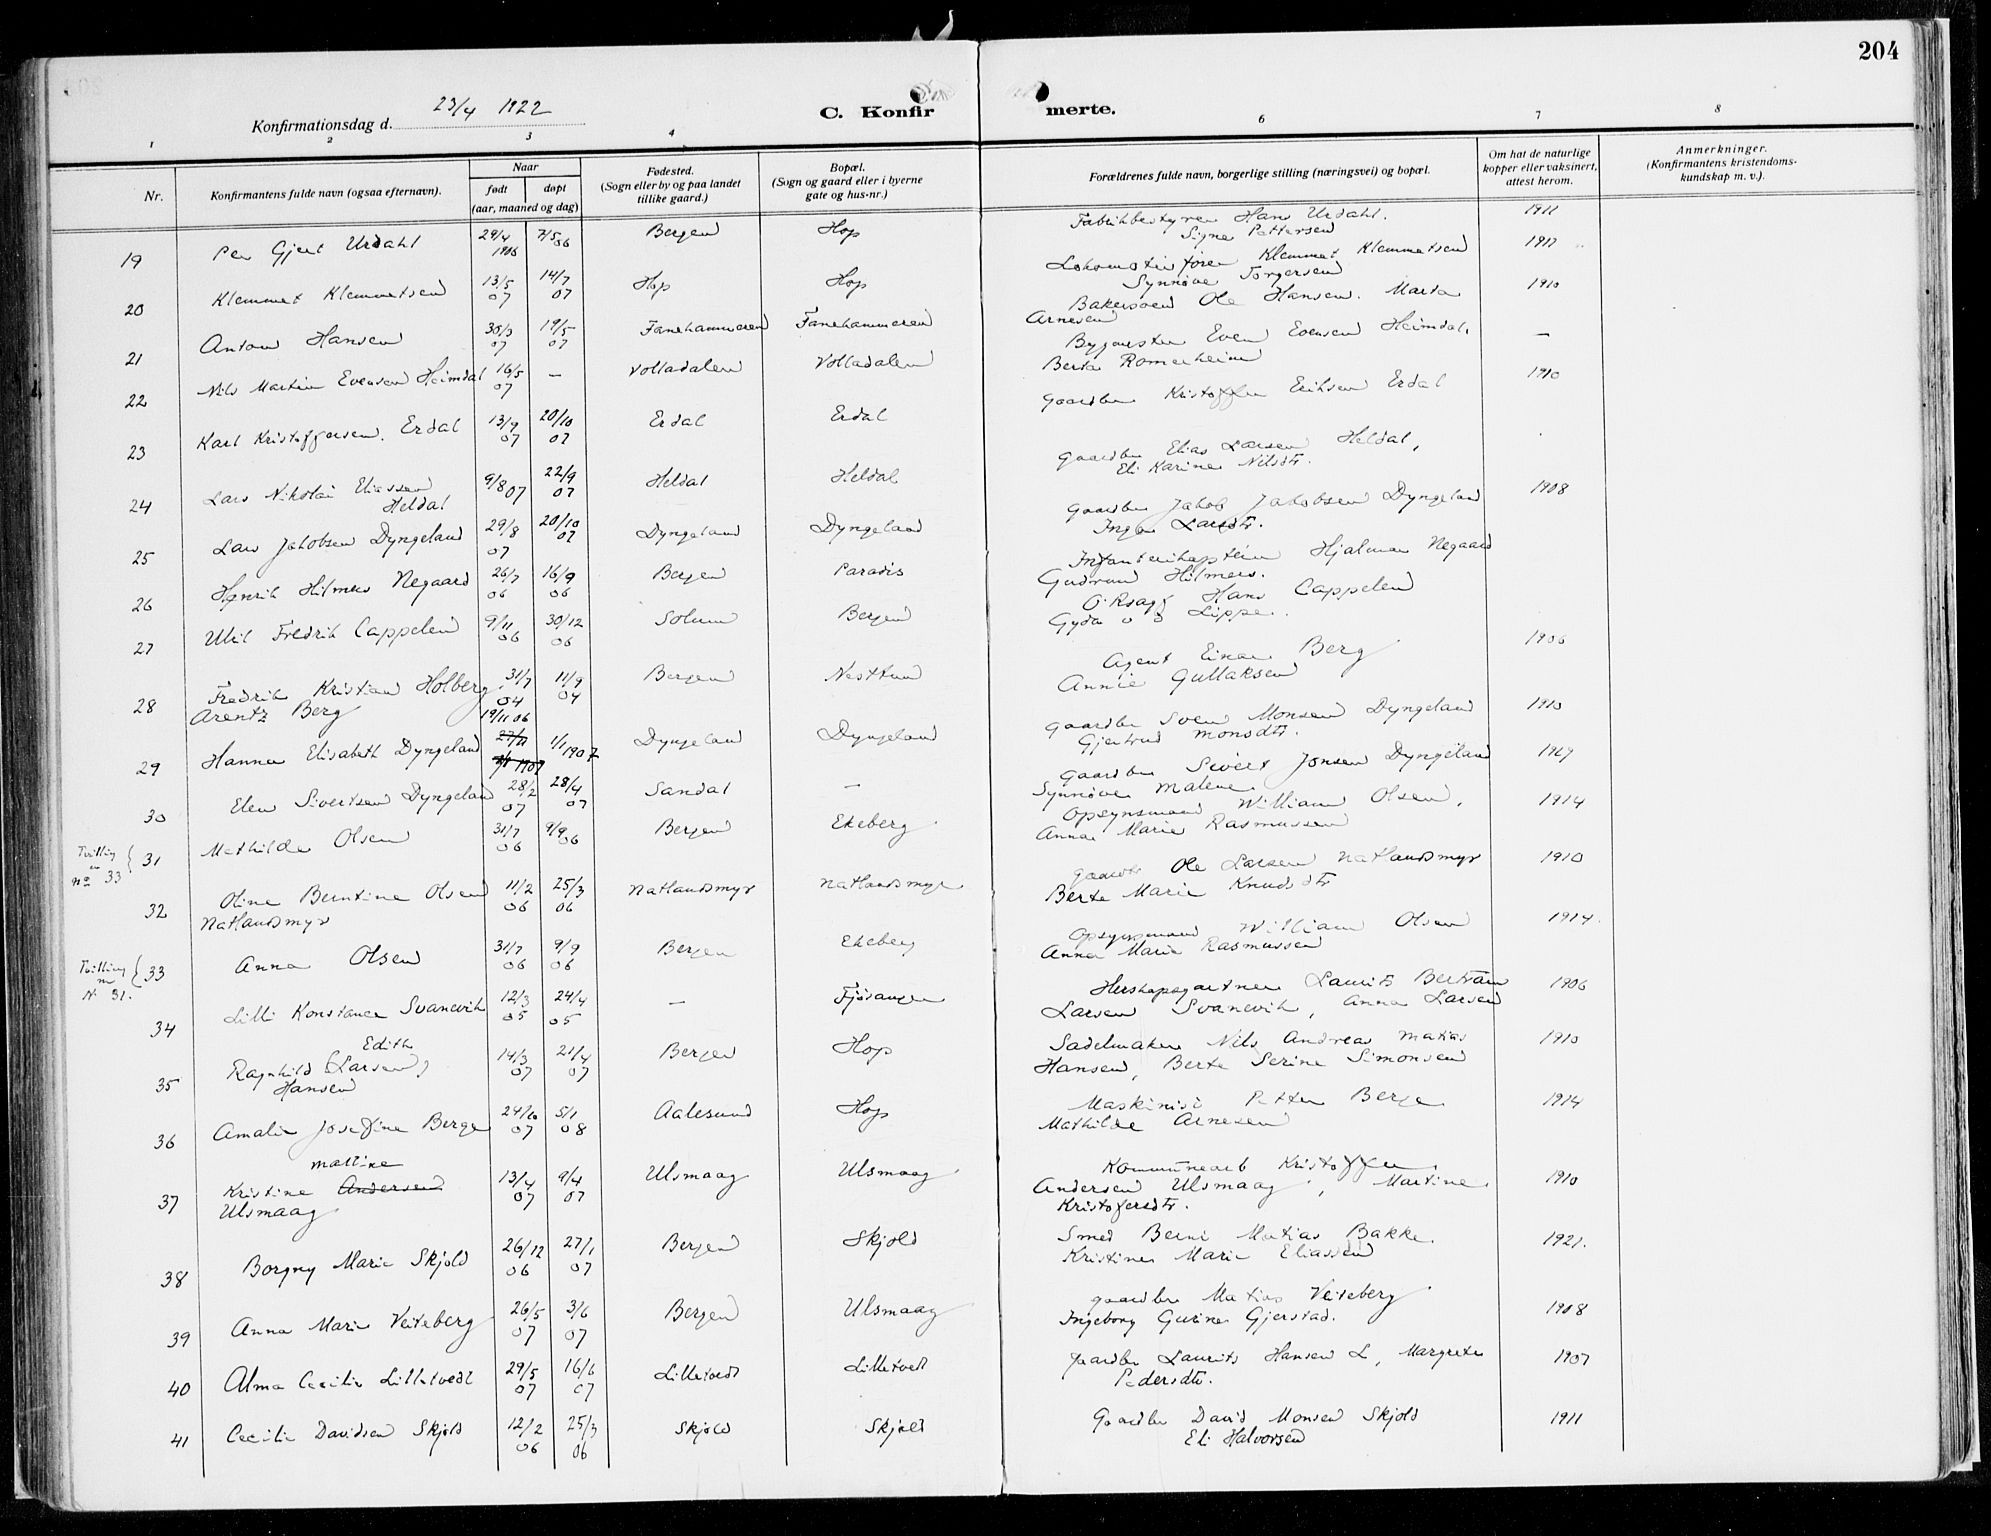 204
Konfirmationsdag d. 23/4 1922
C. Konfirmerte.
1 2 3 4 6 7 8
Nr. Konfirmantens fulde navn (ogsaa efternavn). Naar født døpt (aar, maaned og dag) Fødested. (Sogn eller by og paa landet tillike gaard.) Bopæl. (Sogn og gaard eller i byerne gate og hus-nr.) Forældrenes fulde navn, borgerlige stilling (næringsvei) og bopæl. Om hat de naturlige kopper eller vaksinert, attest herom. Anmerkninger. (Konfirmantens kristendoms-kundskap m. v.).
19 Per Gjert Urdahl 29/4 1906 7/5 06 Bergen Hop Fabrikbestyrer Hans Urdahl. Signe Pettersen 1911
20 Klemmet Klemmetsen 13/5 07 14/7 07 Hop Hop Lokomotivfører Klemmet Klemmetsen Synnøve Torgersen 1911
21 Anton Hansen 30/3 07 19/5 07 Fanehammeren Fanehammeren Bakersvend Ole Hansen. Marta Arnesen 1910
22 Nils Martin Evensen Heimdal 16/5 07 — Volladalen Volladalen Bygmester Even Evensen Heimdal, Berta Romerheim —
23 Karl Kristoffersen Erdal 13/9 07 20/10 07 Erdal Erdal Gaardbr Kristoffer Eriksen Erdal 1910
24 Lars Nikolai Eliassen Heldal 9/8 07 22/9 07 Heldal Heldal Gaardbr Elias Larsen Heldal, Eli Karine Nilsdtr.
25 Lars Jakobsen Dyngeland 29/8 07 20/10 07 Dyngeland Dyngeland Gaardbr Jakob Jakobsen Dyngeland Inga Larsdtr. 1908
26 Henrik Hilmers Negaard 26/7 06 16/9 06 Bergen Paradis Infanterikaptein Hjalmar Negaard Gudrun Hilmers.
27 Ulil Fredrik Cappelen 9/11 06 30/12 06 Solum Bergen O.Rsagf Hans Cappelen Gyda v d Lippe.
28 Fredrik Kristian Holberg Arentz Berg 31/7 04 11/9 04 Bergen Nesttun Agent Einar Berg Annie Gullaksen 1906
29 Hanna Elisabeth Dyngeland 19/11 06 1/1 1907 Dyngeland Dyngeland Gaardbr Sven Monsen Dyngeland Gjertrud Monsdtr. 1910
30 Elen Sivertsen Dyngeland 28/2 07 28/4 07 Sandal — Gaardbr Sivert Jonsen Dyngeland Synnøve Malene
Tvilling m No 33 31 Mathilde Olsen 31/7 06 9/9 06 Bergen Ekeberg Opsynsmand William Olsen, Anna Marie Rasmussen 1914
32 Oline Berntine Olsen Natlandsmyr 11/2 06 25/3 06 Natlandsmyr Natlandsmyr Gaardbr Ole Larsen Natlandsmyr Berte Marie Knudsdtr 1910
Tvilling m N. 31. 33 Anna Olsen 31/7 06 9/9 06 Bergen Ekeberg Opsynsmand William Olsen Anna Marie Rasmussen 1914
34 Lilli Konstanse Svanevik 12/3 05 24/4 05 — Fjøsanger Herskapsgartner Laurits Bertram Larsen Svanevik, Anna Larsen 1906
35 Ragnhild Edith (Larsen) Hansen 14/3 07 21/4 07 Bergen Hop Sadelmaker Nils Andreas Matias Hansen, Berte Serine Simonsen 1910
36 Amalie Josefine Berge 24/10 07 5/1 08 Aalesund Hop Maskinist Petter Berge Mathilde Arnesen 1914
37 Kristine Mattine Andersen Ulsmaag 13/4 07 9/4 07 Ulsmaag Ulsmaag Kommunearb Kristoffer Andersen Ulsmaag, Martine Kristofersdtr. 1910
38 Borgny Marie Skjold 26/12 06 27/1 07 Bergen Skjold Smed Berni Matias Bakke Kristine Marie Eliassen 1921.
39 Anna Marie Veiteberg 26/5 07 3/6 07 Bergen Ulsmaag Gaardbr Matias Veiteberg Ingeborg Gurine Gjerstad. 1908
40 Alma Cecilie Lilletvedt 29/5 07 16/6 07 Lilletvedt Lilletvedt Gaardbr Laurits Hansen L, Margrete Pedersdtr. 1907
41 Cecilie Davidsen Skjold 12/2 06 25/3 06 Skjold Skjold Gaardbr David Monsen Skjold Eli Halvorsen 1911